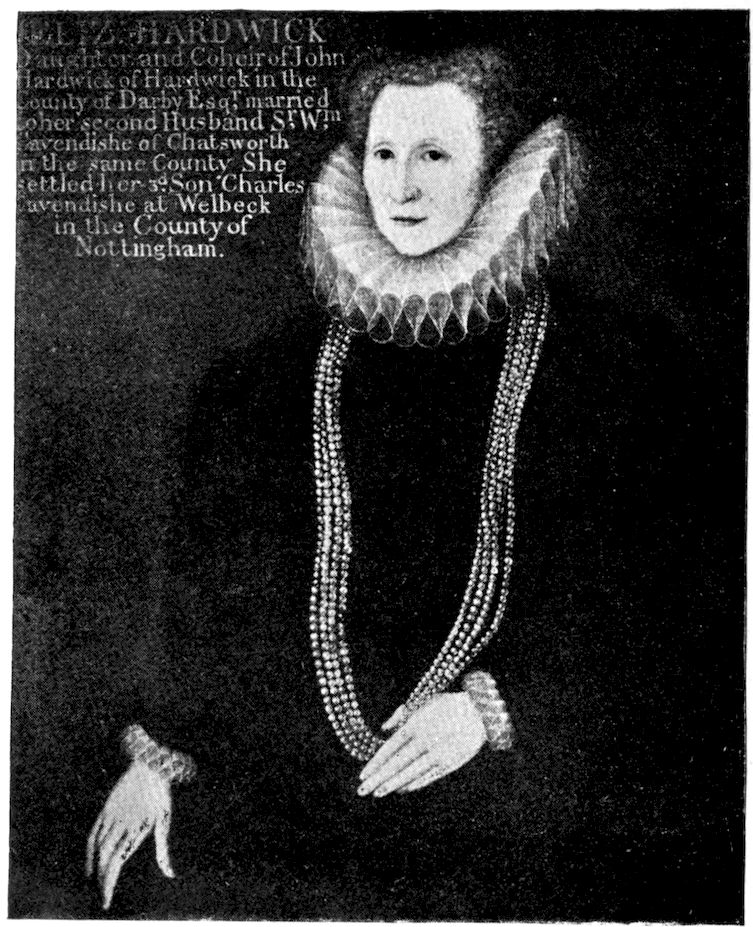 ELIZ: HARDWICK
Daughter and Coheir of John
Hardwick of Hardwick in the
County of Darby Esqr. married
to her second Husband Sr. Wm.
Cavendishe of Chatsworth
in the same County She
settled her 3d. Son Charles
Cavendishe at Welbeck
in the County of
Nottingham.